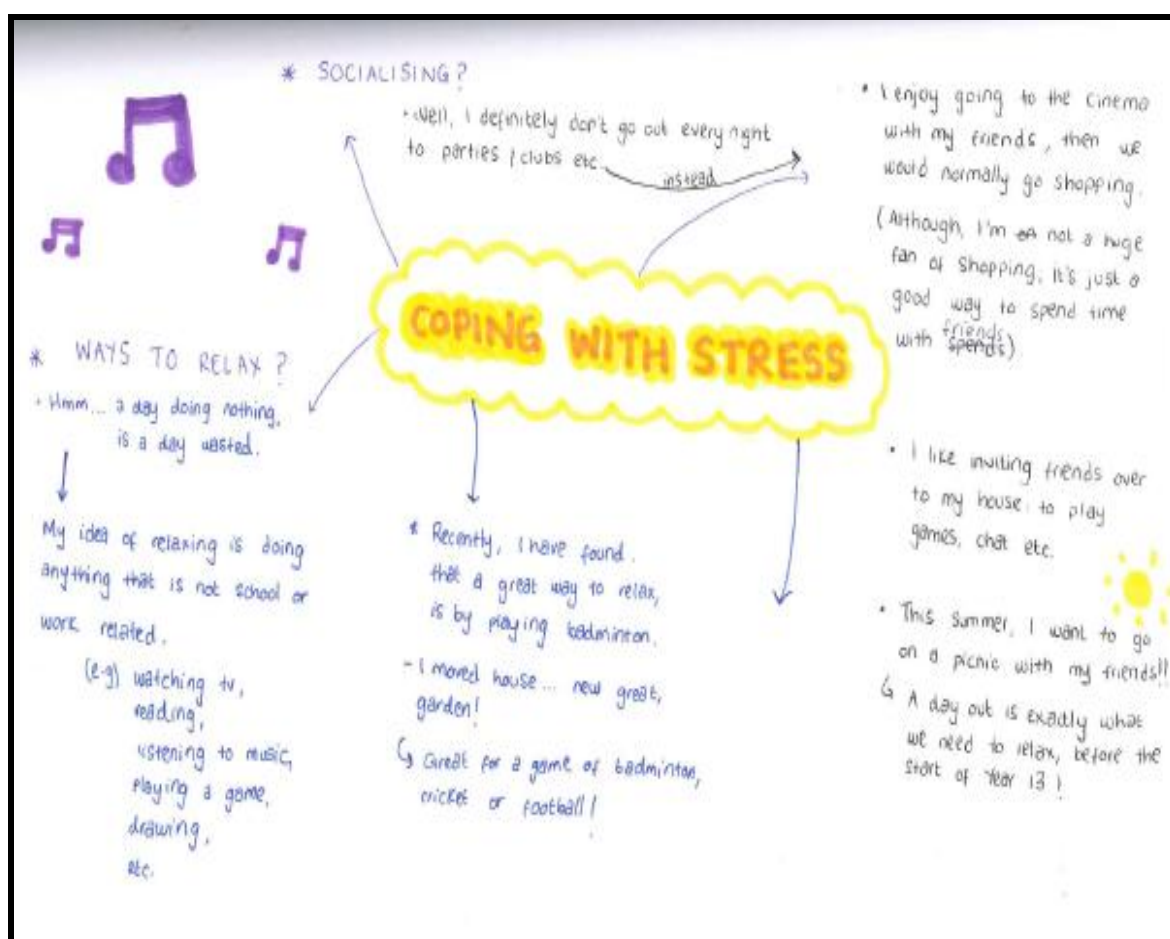 * SOCIALISING?
- Well, I definitely don't go out every night
to parties / clubs etc
instead
• I enjoy going to the cinema
with my friends, then we
would normally go shopping.
(Although, I'm not a huge
fan of shopping, it's just a
good way to spend time
with friends)
• I like inviting friends over
to my house: to play
games, chat etc.
• This summer, I want to go
on a picnic with my friends!!
↳ A day out is exactly what
we need to relax, before the
start of Year 13!
COPING WITH STRESS
* WAYS TO RELAX?
- Hmm... a day doing nothing,
is a day wasted.
My idea of relaxing is doing
anything that is not school or
work related.
(e.g) watching tv,
reading,
listening to music,
playing a game,
drawing,
etc.
* Recently, I have found.
that a great way to relax,
is by playing badminton.
- I moved house... new great,
garden!
↳ Great for a game of badminton,
cricket or football!